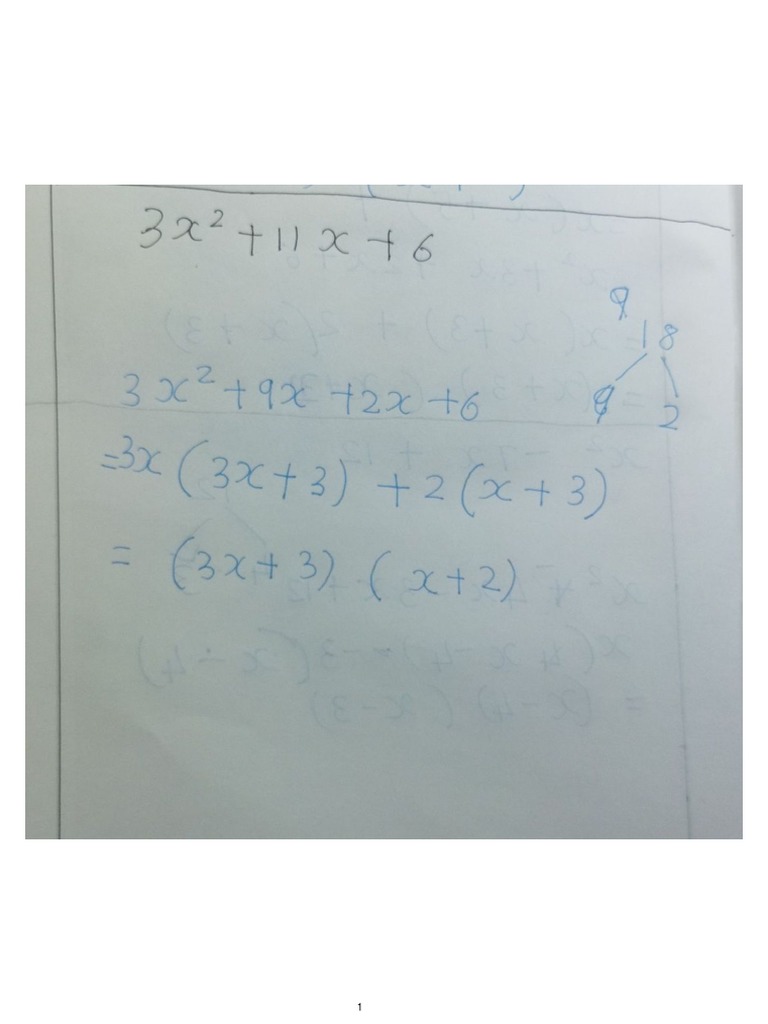 3x² + 11x + 6
9
18
9 2
3x² + 9x + 2x + 6
=3x (3x + 3) + 2 (x + 3)
= (3x + 3) (x + 2)
1